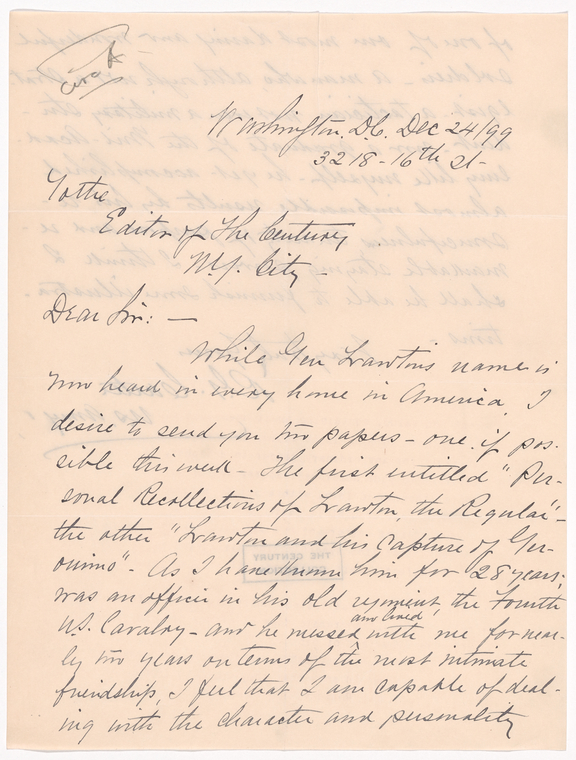 Washington, D.C. Dec 24/99
3218 - 16th St -
To the
Editor of The Century
N.Y. City -
Dear Sir: —
While Gen Lawton's name is
now heard in every home in America, I
desire to send you two papers - one if pos-
sible this week - The first entitled "Per-
sonal Recollections of Lawton, the Regular" -
the other "Lawton and his Capture of Ger-
onimo" - As I have known him for 28 years;
was an officer in his old regiment, the Fourth
U.S. Cavalry - and he messed and lived with me for near-
ly two years on terms of the most intimate
friendship, I feel that I am capable of deal-
ing with the character and personality
THE CENTURY